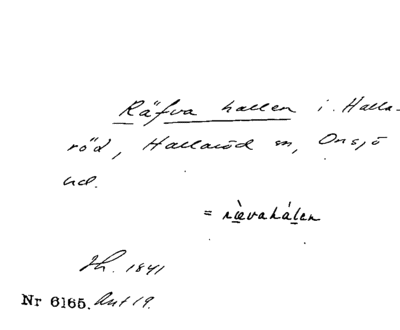 Räfva hallen i Halla-
röd, Hallaröd sn, Onsjö
hd.
= rævahálen
Th. 1841
Nr 6165. Ant 19.